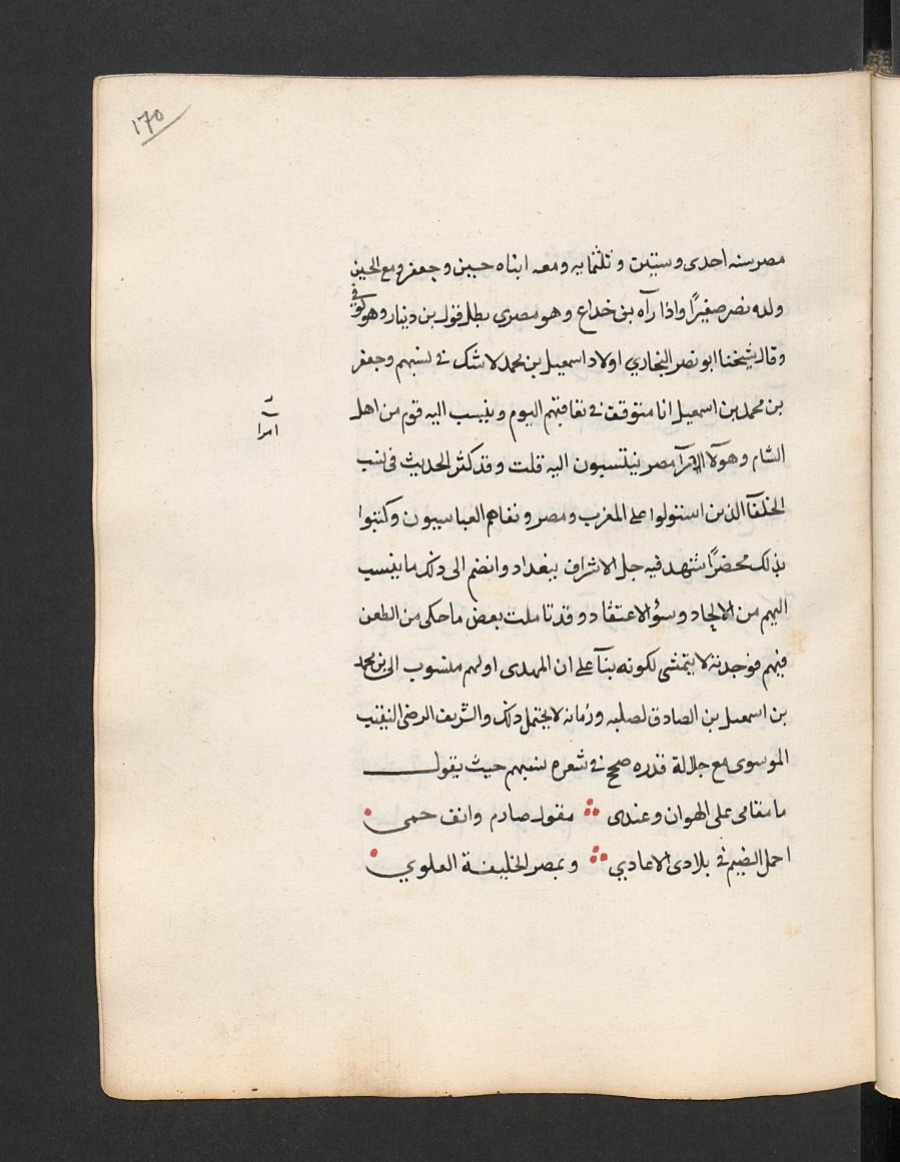 170
مصر سنه احدى وستين وثلثمايه ومعه ابناه حسين وجعفر ومع الحسين
ولده نصر صغيرًا واذا رآه بن خداع وهو مصري بطل قول بن دينار وهو كوفي
وقال شيخنا ابو نصر البخاري اولاد اسمعيل بن محمد لا شك في نسبهم وجعفر
بن محمد بن اسمعيل انا متوقف في بقافتهم اليوم وينسب اليه قوم من اهل
الشام وهولآ مصر ينتسبون اليه قلت وقد كثر الحديث في نسب
امرآ
الخلفآ الذين استولوا على المغرب ومصر ونفاهم العباسيون وكتبوا
بذلك محضرًا شهد فيه جل الاشراف ببغداد وانضم الى ذلك ما ينسب
اليهم من الالحاد وسؤ الاعتقاد وقد تاملت بعض ما حكى من الطعن
فيهم فوجدته لا يتمشى لكونه بنآ على ان المهدى اولهم منسوب الى بن محمد
بن اسمعيل بن الصادق لصلبه وزمانه لا يحتمل ذلك والشريف الرضى النقيب
الموسوى مع جلالة قدره صحح في شعره نسبهم حيث يقول
ما مقامى على الهوان وعندى مقول صارم وانف حمى
احمل الضيم في بلادى الاعادي وبمصر الخليفة العلوي